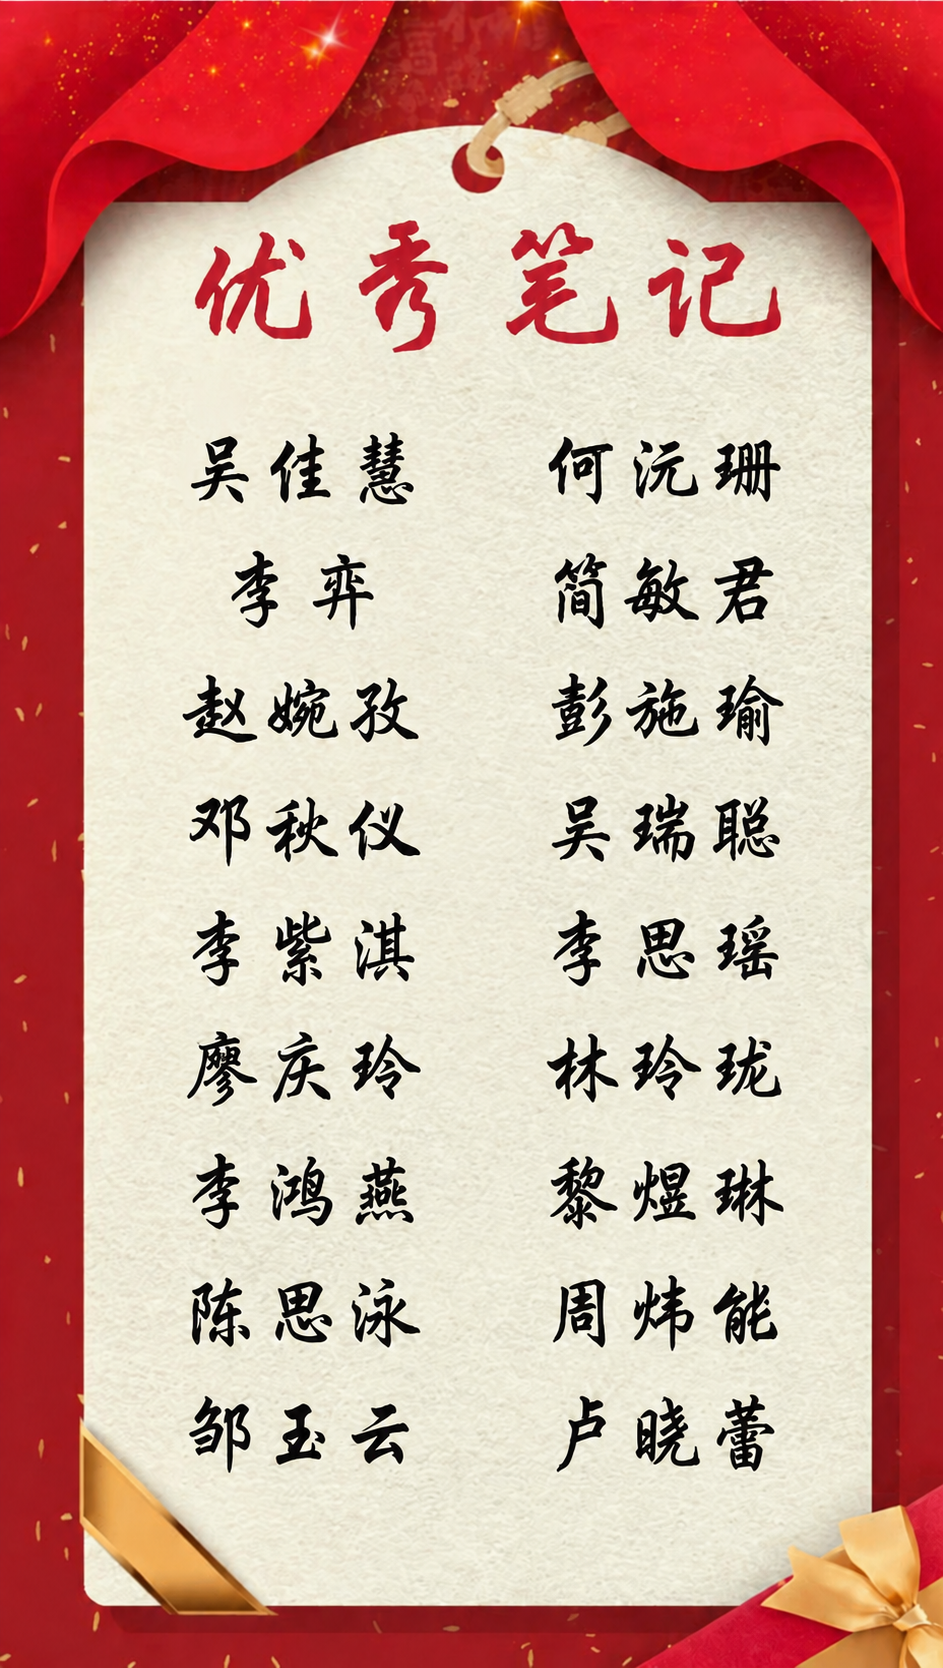 优秀笔记
吴佳慧 何沅珊
李弈 简敏君
赵婉孜 彭施瑜
邓秋仪 吴瑞聪
李紫淇 李思瑶
廖庆玲 林玲珑
李鸿燕 黎煜琳
陈思泳 周炜能
邹玉云 卢晓蕾